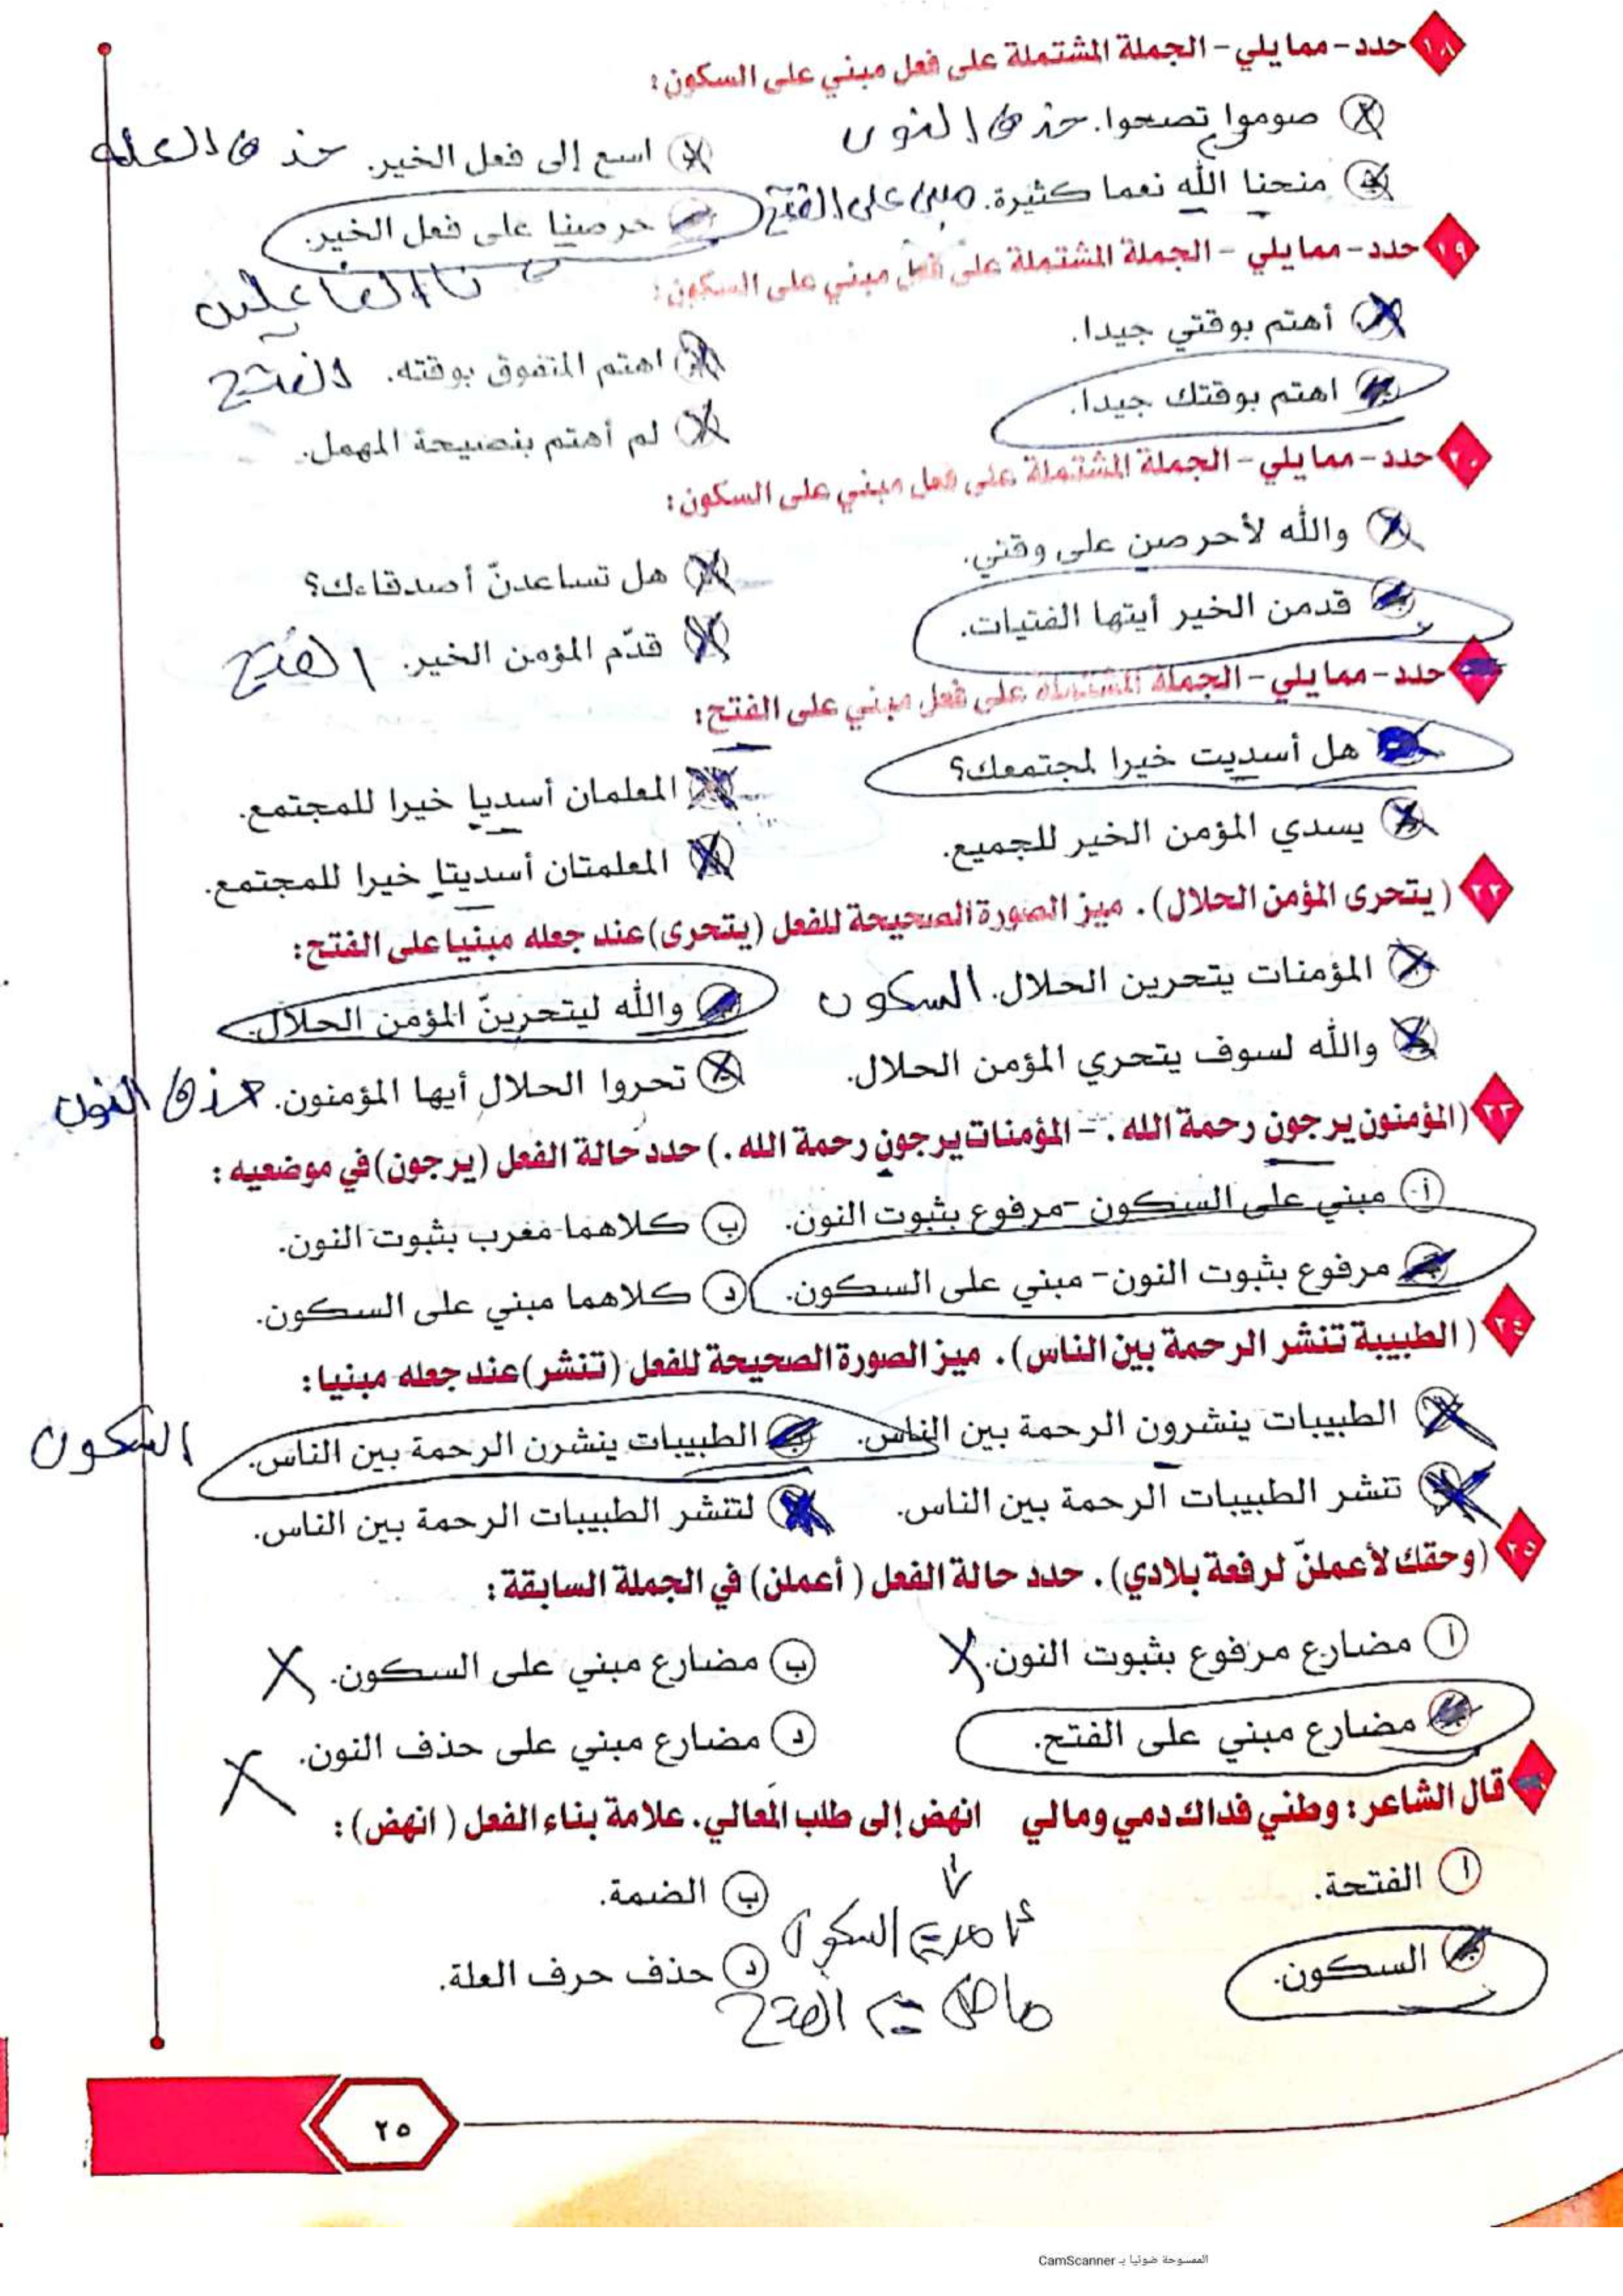 ١٨ حدد - مما يلي - الجملة المشتملة على فعل مبني على السكون :
أ صوموا تصحوا. حذف النون
ب اسع إلى فعل الخير. حذف العلة
ج منحنا الله نعما كثيرة. مبني على الفتح
د حرصنا على فعل الخير.
نا الفاعلين
١٩ حدد - مما يلي - الجملة المشتملة على فعل مبني على السكون :
أهتم بوقتي جيدا.
اهتم المتفوق بوقته. الفتح
اهتم بوقتك جيدا.
لم أهتم بنصيحة المهمل.
٢٠ حدد - مما يلي - الجملة المشتملة على فعل مبني على السكون :
والله لأحرصن على وقتي.
هل تساعدنّ أصدقاءك؟
قدمن الخير أيتها الفتيات.
قدّم المؤمن الخير. الفتح
حدد - مما يلي - الجملة المشتملة على فعل مبني على الفتح :
هل أسديت خيرا لمجتمعك؟
المعلمان أسديا خيرا للمجتمع.
يسدي المؤمن الخير للجميع.
المعلمتان أسديتا خيرا للمجتمع.
٢٢ ( يتحرى المؤمن الحلال ) . ميز الصورة الصحيحة للفعل (يتحرى) عند جعله مبنيا على الفتح :
المؤمنات يتحرين الحلال. السكون
والله ليتحرينّ المؤمن الحلال.
والله لسوف يتحري المؤمن الحلال.
تحروا الحلال أيها المؤمنون. حذف النون
٢٣ (المؤمنون يرجون رحمة الله . - المؤمنات يرجون رحمة الله . ) حدد حالة الفعل (يرجون) في موضعيه :
أ مبني على السكون - مرفوع بثبوت النون.
ب كلاهما معرب بثبوت النون.
ج مرفوع بثبوت النون - مبني على السكون.
د كلاهما مبني على السكون.
٢٤ ( الطبيبة تنشر الرحمة بين الناس ) . ميز الصورة الصحيحة للفعل (تنشر) عند جعله مبنيا :
الطبيبات ينشرون الرحمة بين الناس.
الطبيبات ينشرن الرحمة بين الناس. السكون
تنشر الطبيبات الرحمة بين الناس.
لتنشر الطبيبات الرحمة بين الناس.
٢٥ ( وحقك لأعملنّ لرفعة بلادي ) . حدد حالة الفعل ( أعملن ) في الجملة السابقة :
أ مضارع مرفوع بثبوت النون.
ب مضارع مبني على السكون.
مضارع مبني على الفتح.
د مضارع مبني على حذف النون.
قال الشاعر : وطني فداك دمي ومالي انهض إلى طلب المعالي. علامة بناء الفعل ( انهض ) :
أ الفتحة.
ب الضمة.
أمر = السكون
السكون.
د حذف حرف العلة.
ماض = الفتح
٢٥
الممسوحة ضوئيا بـ CamScanner